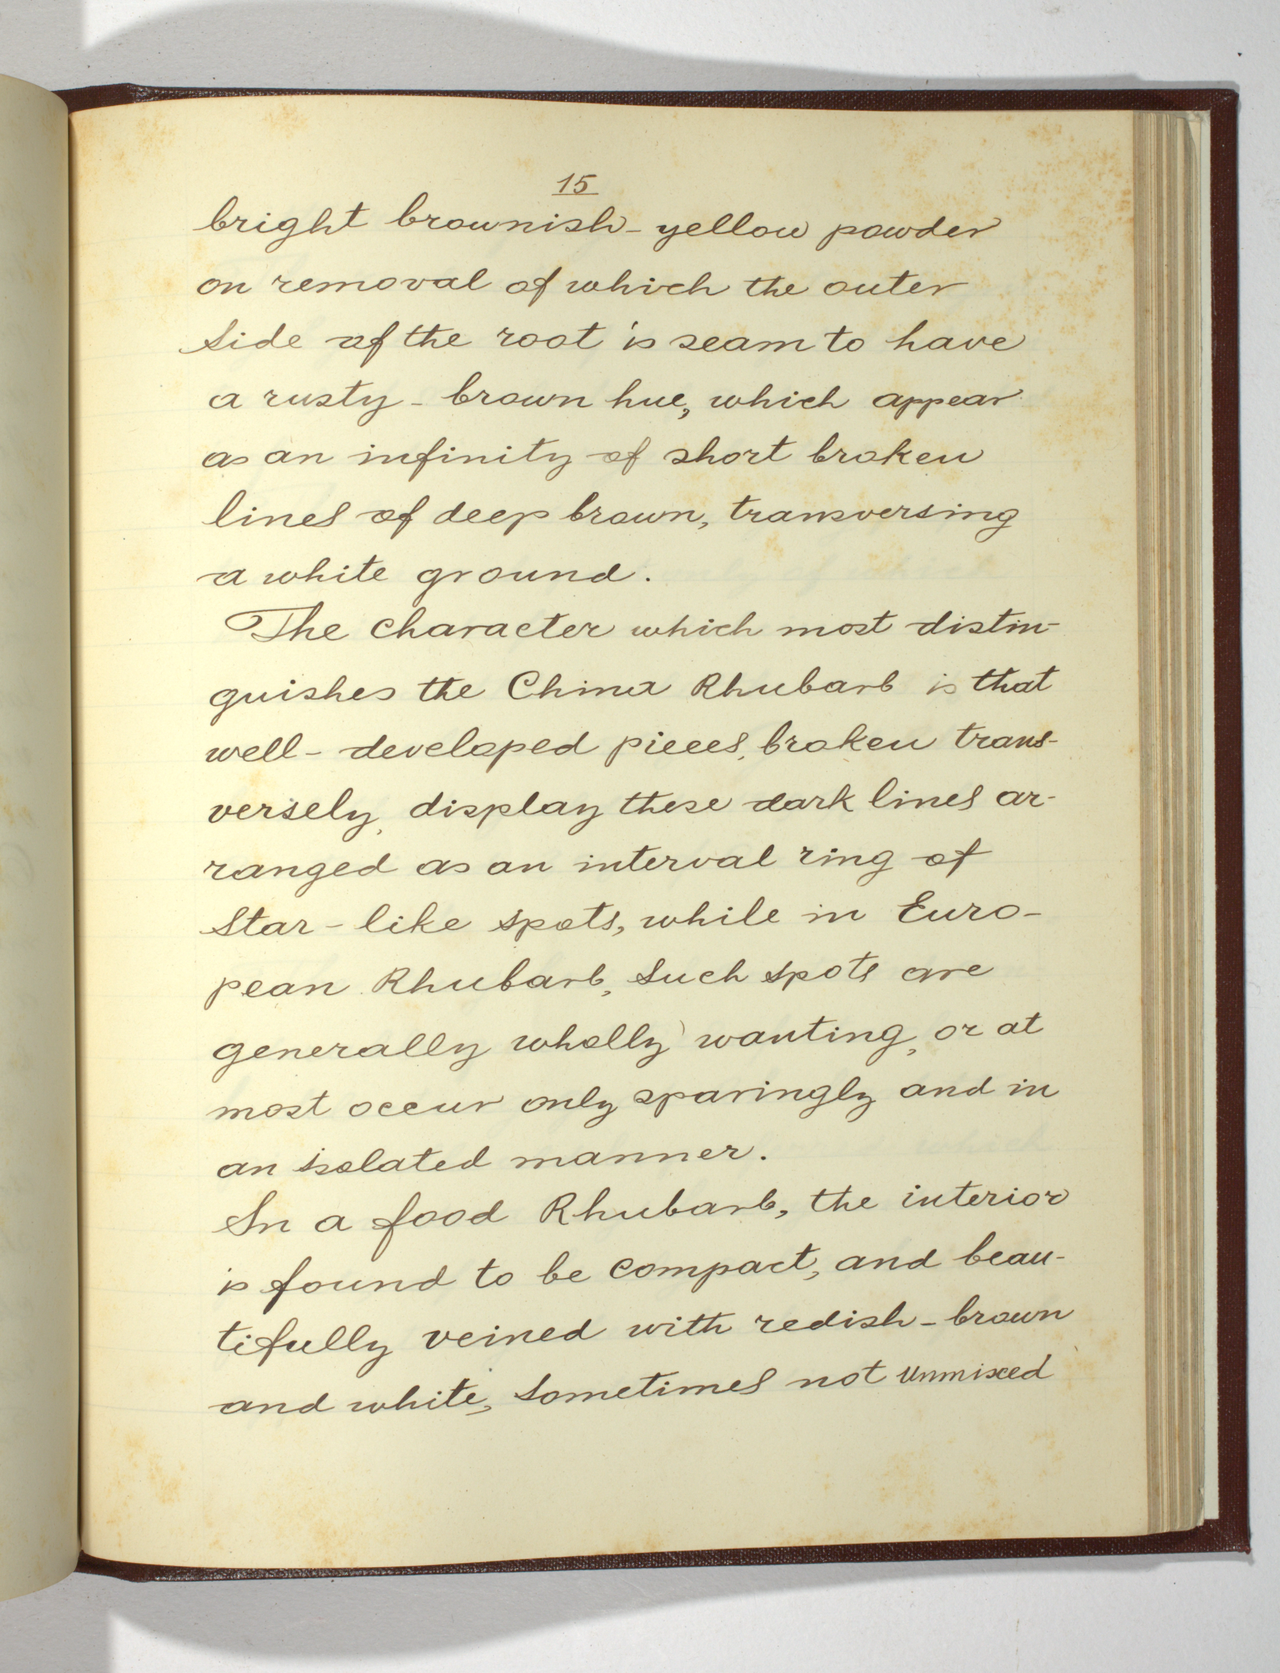 15
bright brownish-yellow powder
on removal of which the outer
side of the root is seam to have
a rusty-brown hue, which appear
as an infinity of short broken
lines of deep brown, transversing
a white ground.
The character which most distin-
guishes the China Rhubarb is that
well-developed pieces, broken trans-
versely, display these dark lines ar-
ranged as an interval ring of
star-like spots, while in Euro-
pean Rhubarb, such spots are
generally wholly wanting, or at
most occur only sparingly and in
an isolated manner.
In a food Rhubarb, the interior
is found to be compact, and beau-
tifully veined with redish-brown
and white, sometimes not unmixed